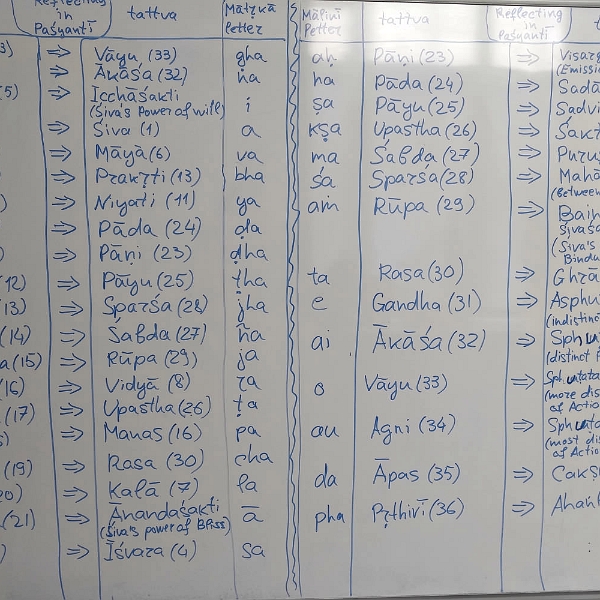 Reflecting in Paśyantī tattva Mātṛkā letter Mālinī letter tattva Reflecting in Paśyantī
3) ⇒ Vāyu (33) gha aḥ Pāṇi (23) ⇒ Visarg
(Emission
⇒ Ākāśa (32) ṅa ha Pāda (24) ⇒ Sadā
(5) ⇒ Icchāśakti i ṣa Pāyu (25) ⇒ Sadvi
(Śiva's Power of will)
⇒ Śiva (1) a kṣa Upastha (26) ⇒ Śakt
⇒ Māyā (6) va ma Śabda (27) ⇒ Puru
⇒ Prakṛti (13) bha śa Sparśa (28) ⇒ Mahā
(Between
⇒ Niyati (11) ya aṁ Rūpa (29) ⇒ Bain
(Śiva's
Bindu
⇒ Pāda (24) ḍa
⇒ Pāṇi (23) ḍha
(12) ⇒ Pāyu (25) ṭha ta Rasa (30) ⇒ Ghrā
(13) ⇒ Sparśa (28) jha e Gandha (31) ⇒ Asphu
(indistinc
(14) ⇒ Śabda (27) ña ai Ākāśa (32) ⇒ Sphuṭa
(distinct
a (15) ⇒ Rūpa (29) ja
(16) ⇒ Vidyā (8) ra o Vāyu (33) ⇒ Sphuṭata
(more dis
of Action
(17) ⇒ Upastha (26) ṭa
⇒ Manas (16) pa au Agni (34) ⇒ Sphuṭata
(most dis
of Action
(19) ⇒ Rasa (30) cha da Āpas (35) ⇒ Cakṣu
20) ⇒ Kalā (7) la
(21) ⇒ Ānandaśakti ā pha Pṛthivī (36) ⇒ Ahaṅ
(Śiva's power of Bliss)
) ⇒ Īśvara (4) sa